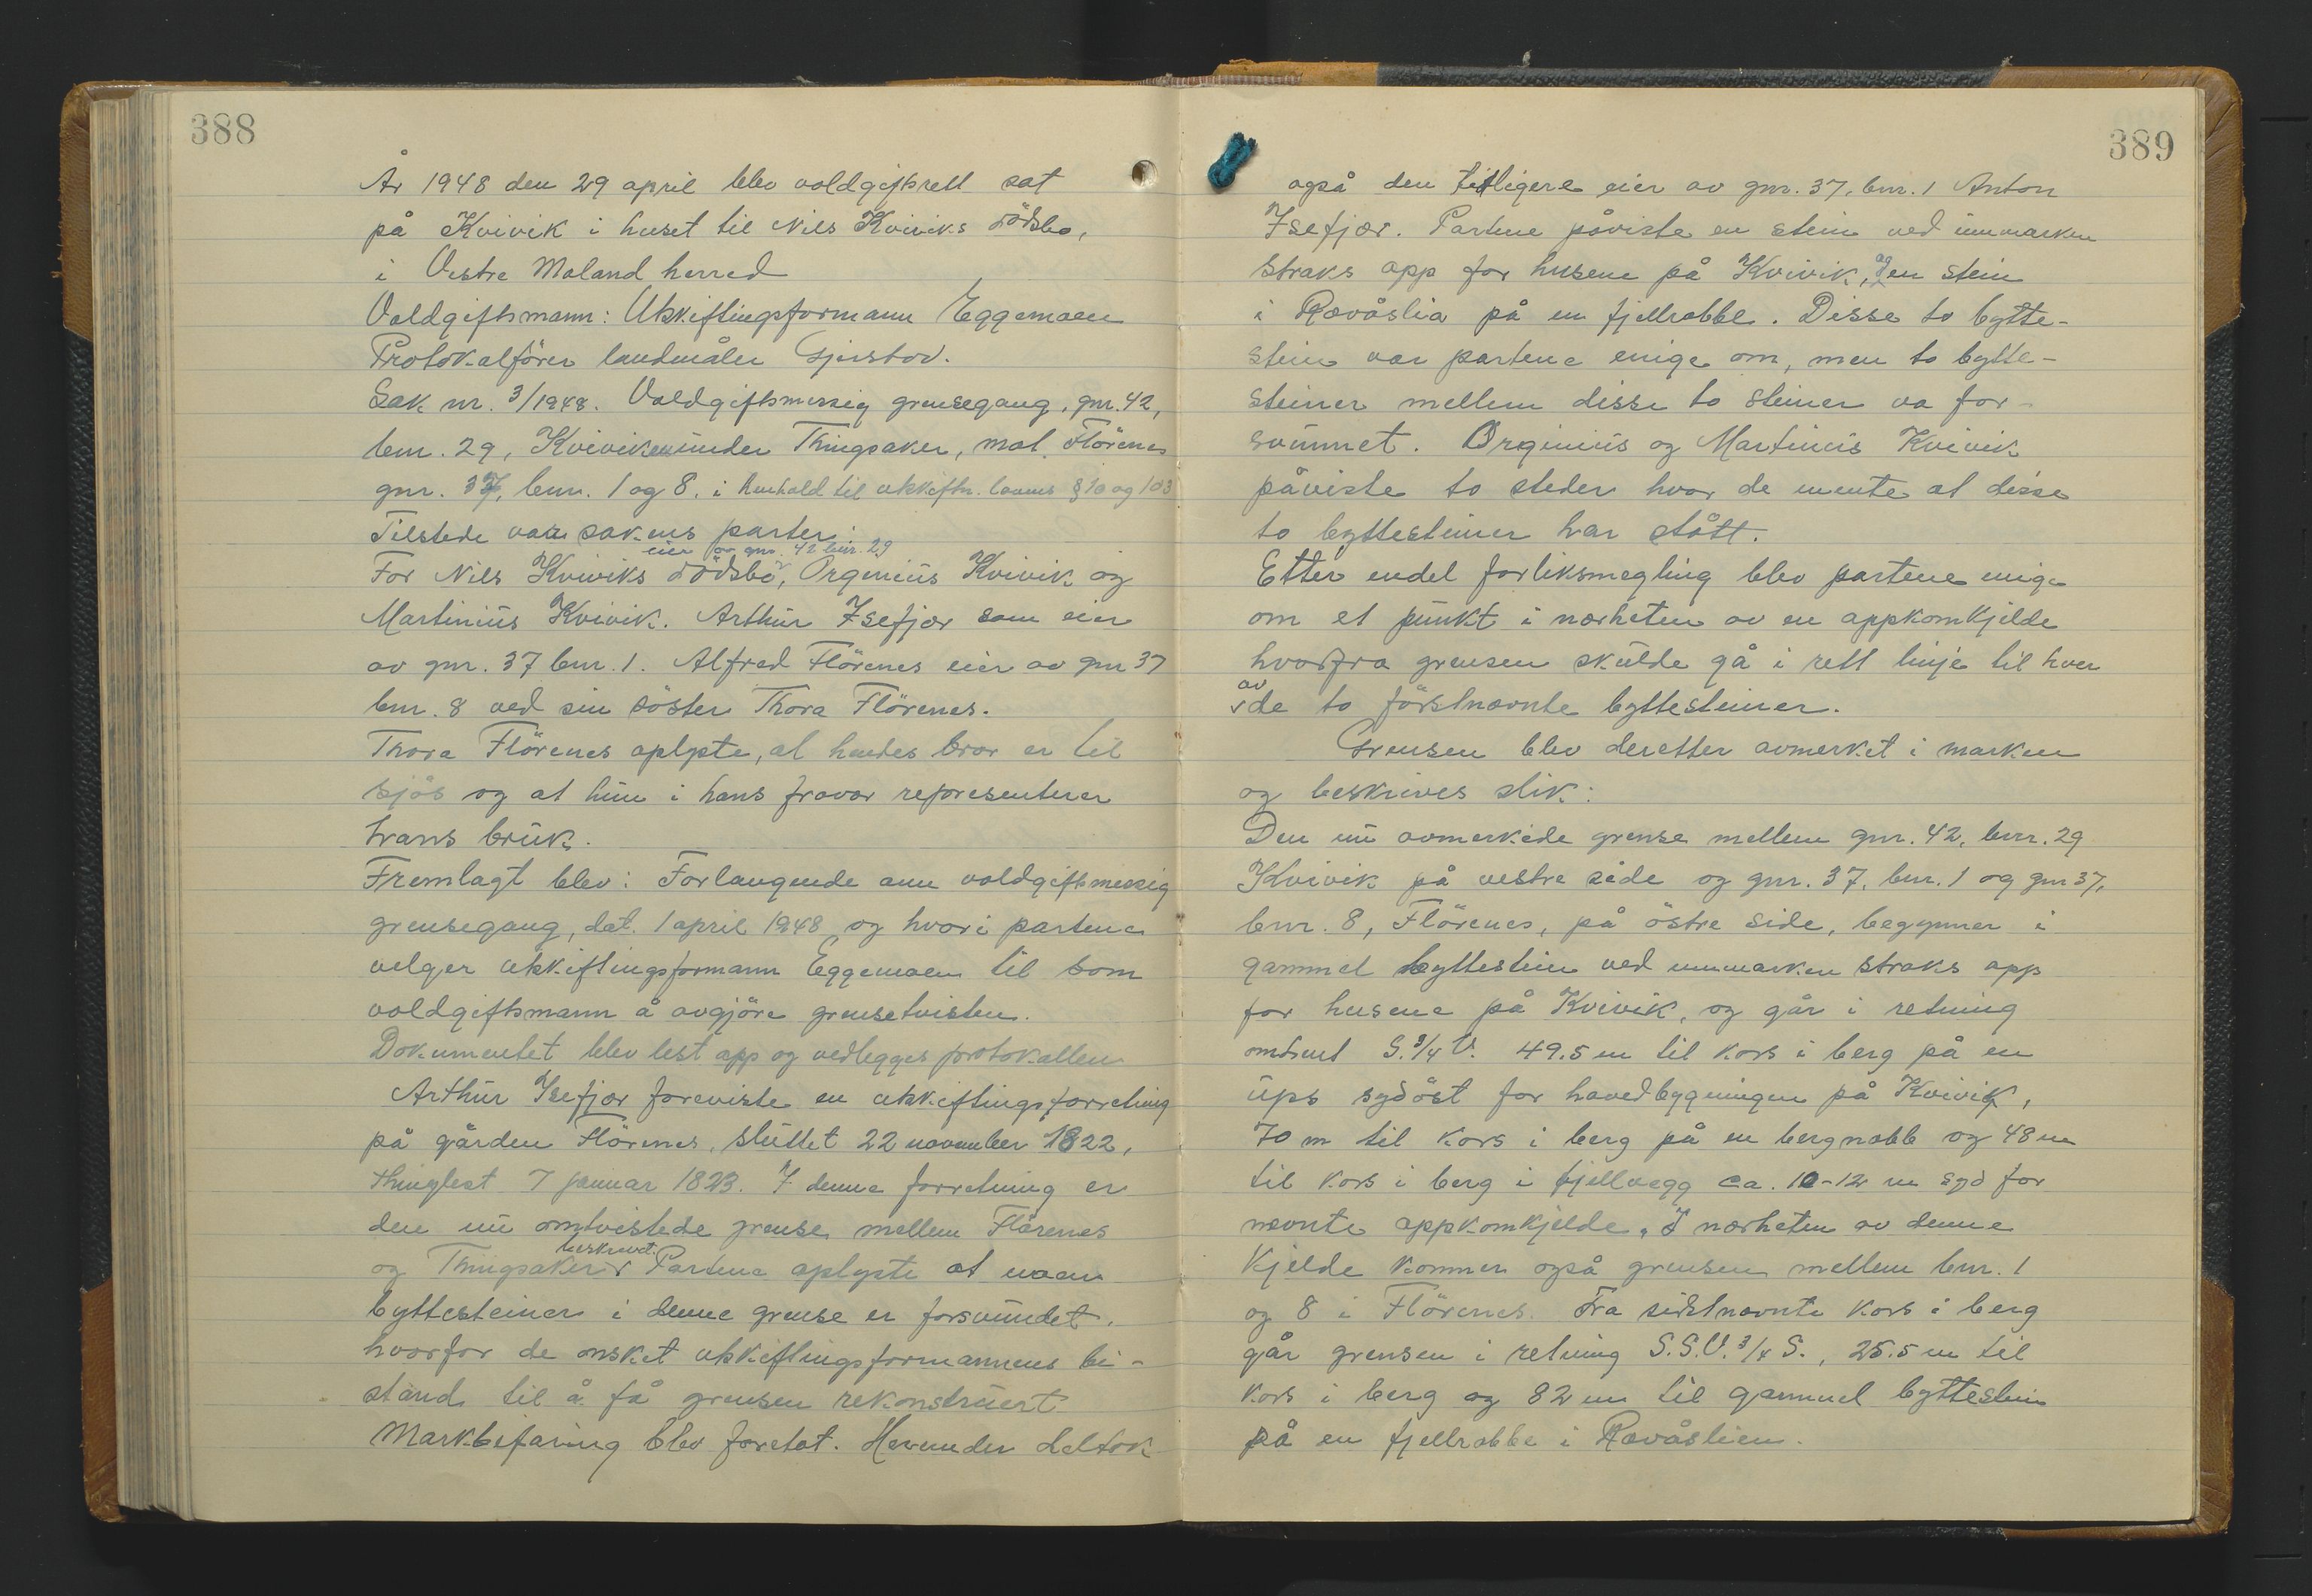 388
År 1948 den 29 april blev voldgiftsrett sat
på Kvivik i huset til Nils Kviviks dödsbo,
i Vestre Moland herred
Voldgiftsmann: Utskiftingsformann Eggemoen
Protokolförer landmåler Gjerstad.
Sak nr. 3/1948. Voldgiftsmessig grensegang, gnr. 42,
bnr. 29, Kviviken under Tingsaker, mot Flörenes
gnr. 37, bnr. 1 og 8. i henhold til utskiftn. lovens § 10 og 103
Tilstede var sakens parter:
eier av gnr. 42 bnr. 29
For Nils Kviviks dödsbo, Orgenius Kvivik og
Martinius Kvivik. Arthur Isefjær som eier
av gnr. 37 bnr. 1. Alfred Flörenes eier av gnr 37
bnr. 8 ved sin söster Thora Flörenes.
Thora Flörenes oplyste, at hendes bror er til
sjös og at hun i hans fravær representerer
hans bruk.
Fremlagt blev: Forlangende om voldgiftsmessig
grensegang, dat. 1 april 1948 og hvori partene
velger utskiftingsformann Eggemoen til som
voldgiftsmann å avgjöre grensetvisten.
Dokumentet blev lest opp og vedlegges protokollen
Arthur Isefjær foreviste en utskiftingsforretning
på gården Flörenes, sluttet 22 november 1822,
thinglest 7 januar 1823. I denne forretning er
den nu omtvistede grense mellem Flörenes
og Thingsaker beskrevet. Partene oplyste at noen
byttesteiner i denne grense er forsvundet,
hvorfor de önsket utskiftingsformannens bi-
stand til å få grensen rekonstruert
Markbefaring blev foretat. Herunder deltok
389
også den tidligere eier av gnr. 37, bnr. 1 Anton
Isefjær. Partene påviste en stein ved innmarken
straks opp for husene på Kvivik, og en stein
i Rævåslia på en fjellrabbe. Disse to bytte-
stein var partene enige om, men to bytte-
steiner mellem disse to steiner va for-
svunnet. Orginius og Martinius Kvivik
påviste to steder hvor de mente at disse
to byttesteiner har stått.
Etter endel forliksmegling blev partene enige
om et punkt i nærheten av en oppkomkjelde
hvorfra grensen skulde gå i rett linje til hver
av de to förstnævnte byttesteiner.
Grensen blev deretter avmerket i marken
og beskrives slik:
Den nu avmerkede grense mellem gnr. 42, bnr. 29
Kvivik på vestre side og gnr. 37, bnr. 1 og gnr 37,
bnr. 8, Flörenes, på östre side, begynner i
gammel byttestein ved innmarken straks opp
for husene på Kvivik, og går i retning
omtrent S. 3/4 V. 49.5 m til kors i berg på en
ups sydöst for hovedbygningen på Kvivik,
70 m til kors i berg på en bergnabb og 48 m
til kors i berg i fjellvegg ca. 10-12 m syd for
nevnte oppkomkjelde. I nærheten av denne
kjelde kommer også grensen mellem bnr. 1
og 8 i Flörenes. Fra sidstnævnte kors i berg
går grensen i retning S.S.V. 3/4 S., 25.5 m til
kors i berg og 82 m til gammel byttestein
på en fjellrabbe i Rævåslien.